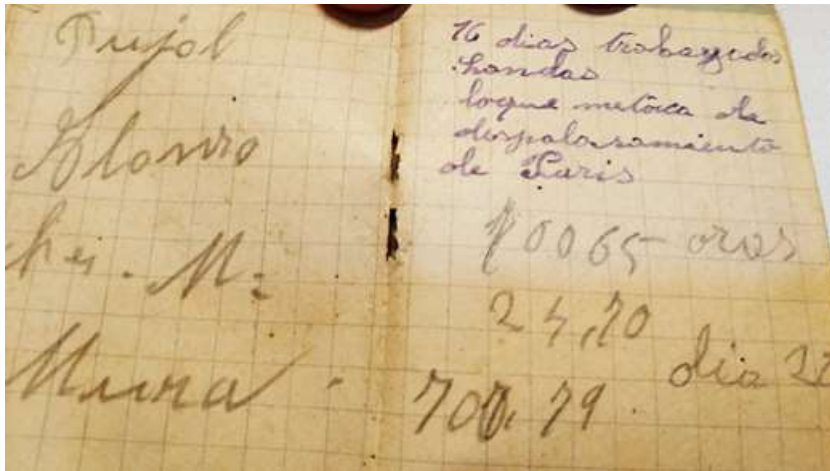 Pujol
Alonso
M:
Mura
16 dias trabayados
handas
loque metoca de
despalasamiento
de Paris
10065 oras
24,70
dia
700,79